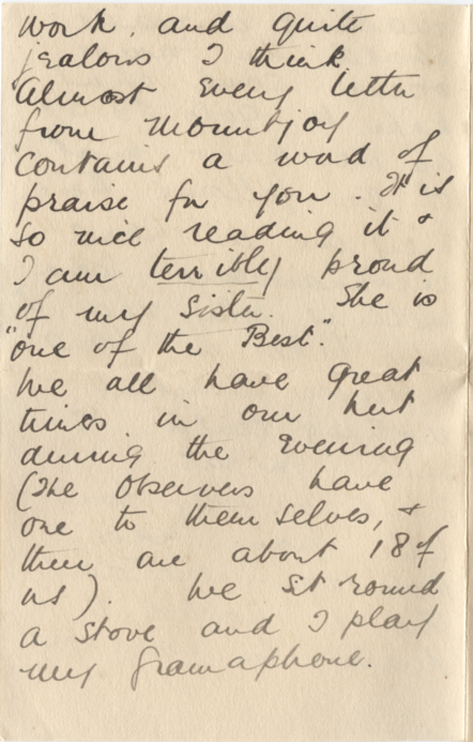 work, and quite
jealous I think.
Almost every letter
from Mountjoy
contains a word of
praise for you. It is
so nice reading it &
I am terribly proud
of my sister. She is
"one of the Best".
We all have great
times in our hut
during the evening
(The Observers have
one to themselves, &
there are about 18 of
us). We sit round
a stove and I play
my gramaphone.